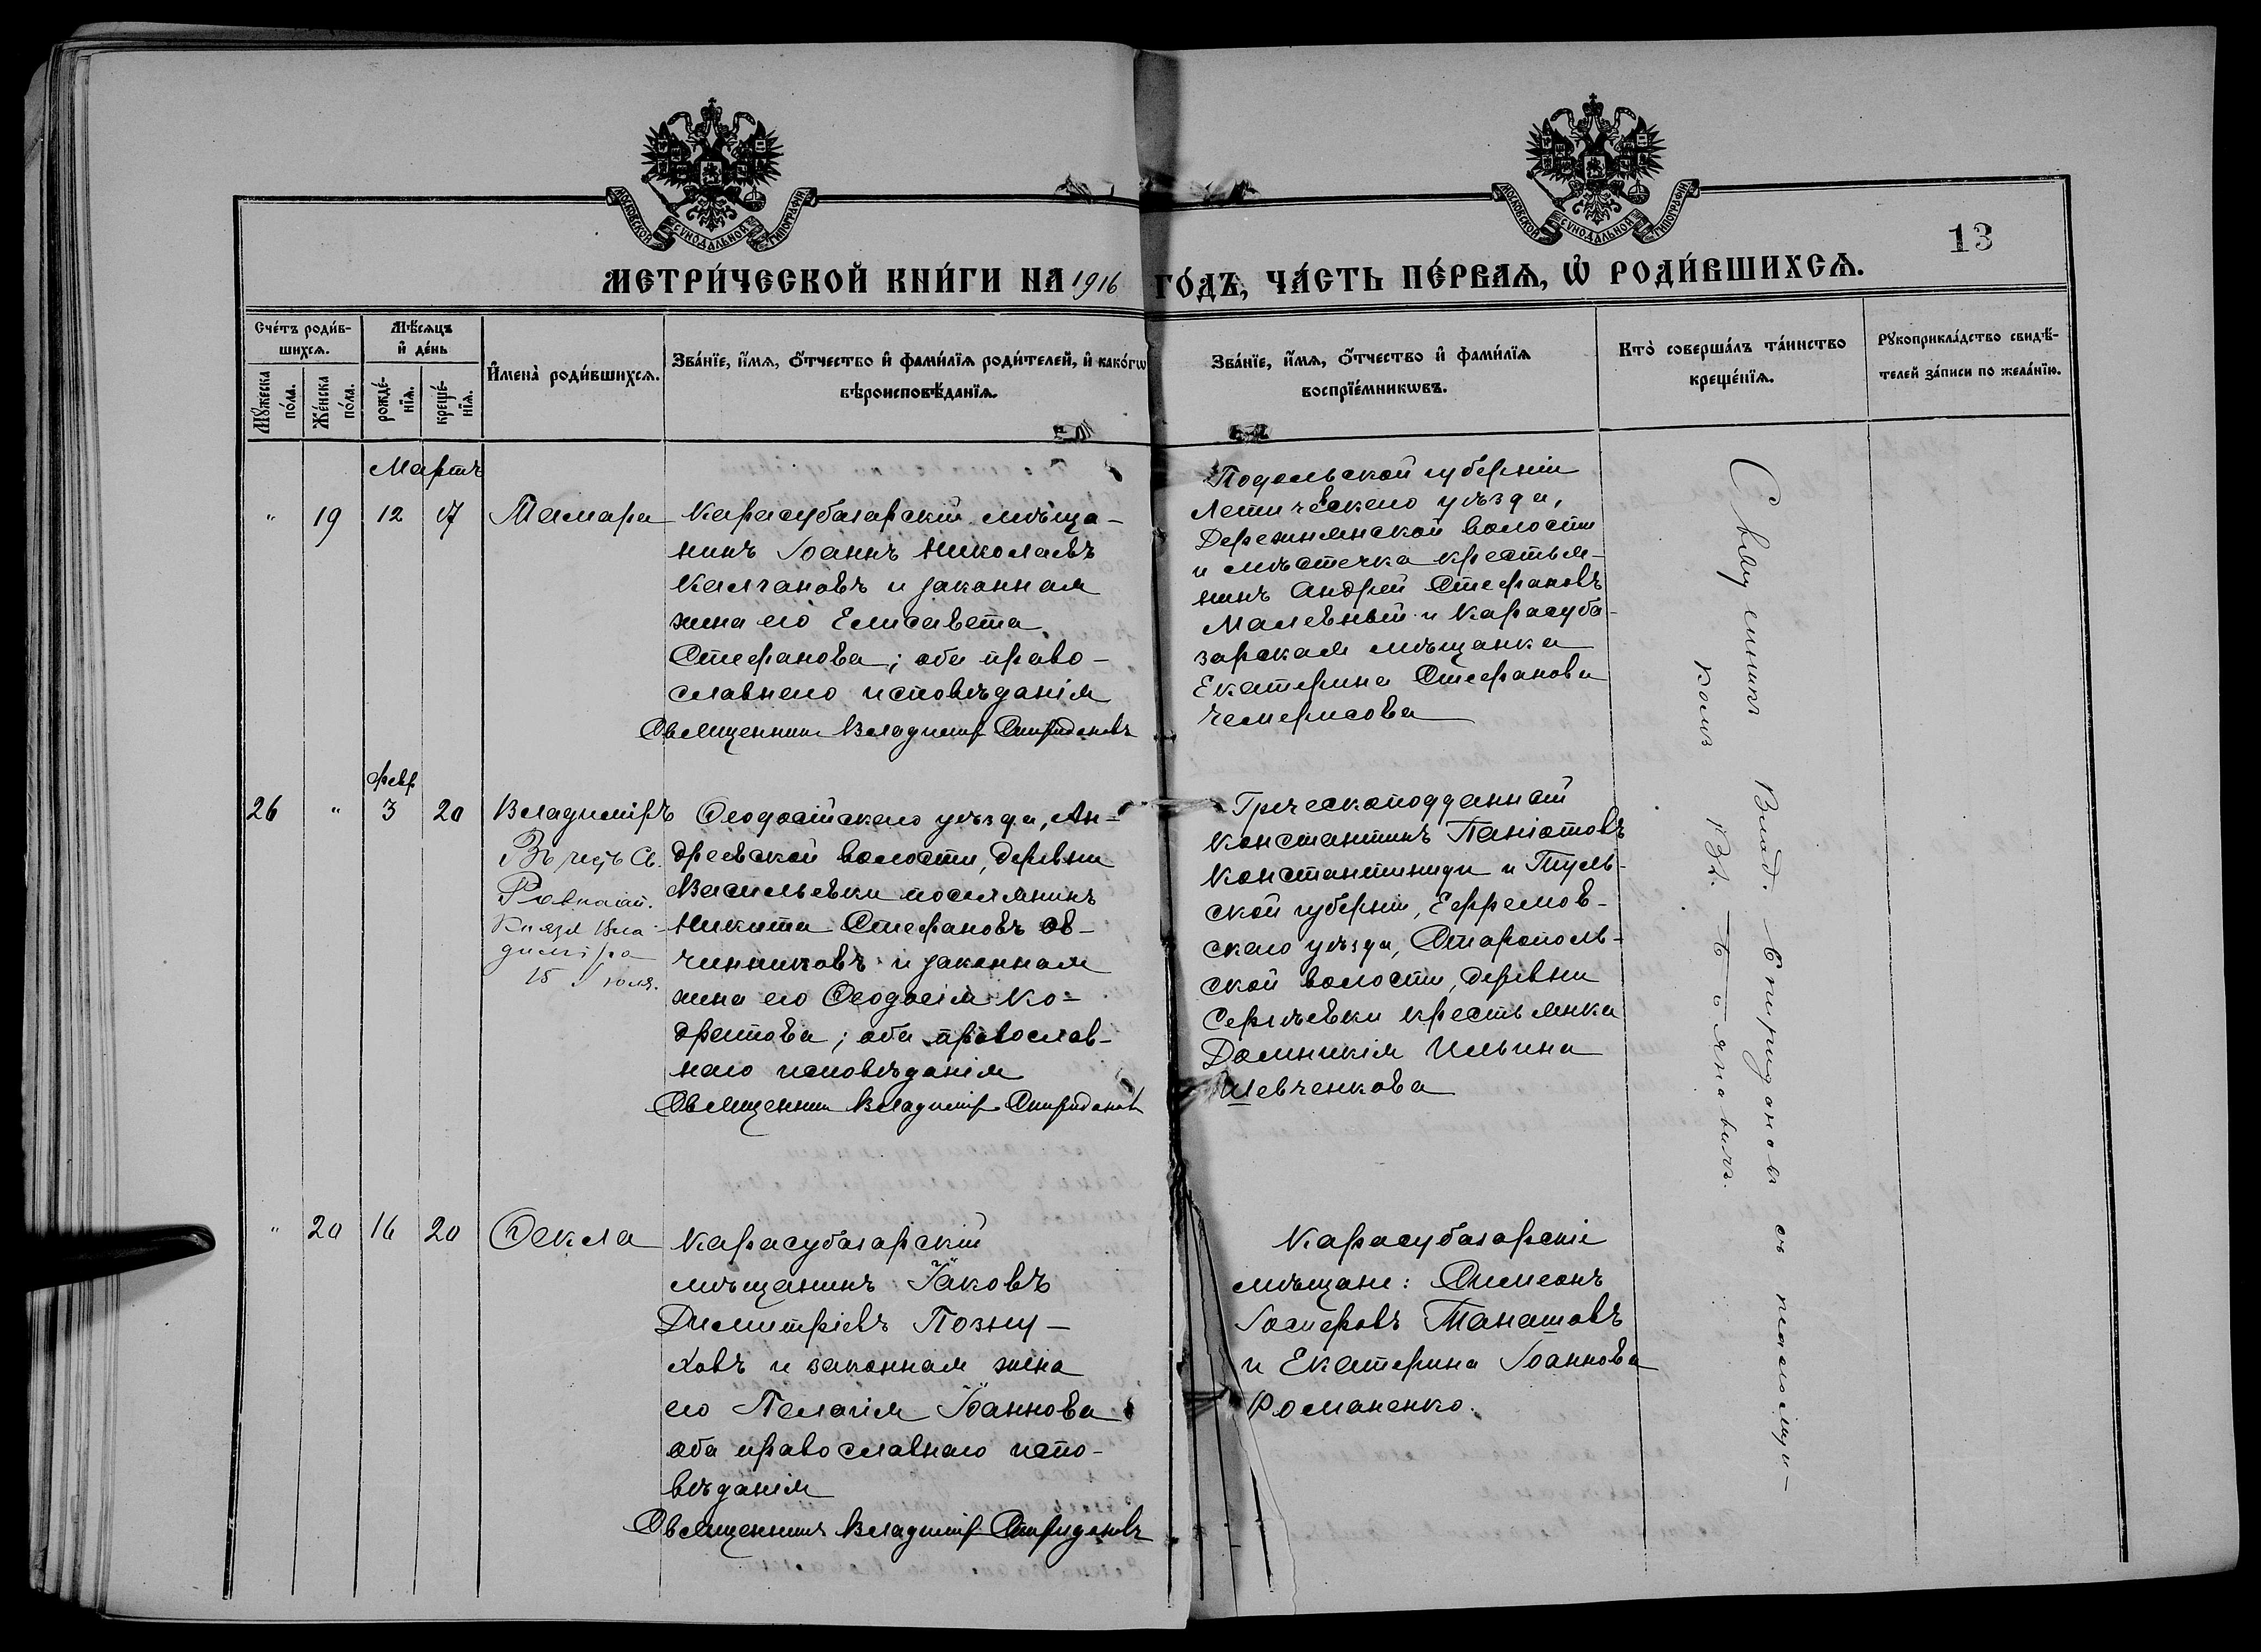 МОСКОВСКОЙ СУНОДАЛЬНОЙ ТИПОГРАФІИ
МОСКОВСКОЙ СУНОДАЛЬНОЙ ТИПОГРАФІИ
13
МЕТРИ́ЧЕСКОЙ КНИ́ГИ НА 1916 ГО́ДЪ, ЧА́СТЬ ПЕ́РВАѦ, Ѡ҆ РОДИ́ВШИХСѦ.
Сче́тъ роди́в-
шихсѧ.
Мꙋ́жеска по́ла.
Же́нска по́ла.
Мѣ́сѧцъ
и҆ де́нь
рожде́-
нїѧ.
креще́-
нїѧ.
И҆мена̀ роди́вшихсѧ.
Зва́нїе, и҆́мѧ, ѻ҆́тчество и҆ фами́лїѧ роди́телей, и҆ како́гѡ
вѣроисповѣ́данїѧ.
Зва́нїе, и҆́мѧ, ѻ҆́тчество и҆ фами́лїѧ
воспрїе́мникѡвъ.
Кто̀ соверша́лъ та́инство
креще́нїѧ.
Рꙋкоприкла́дство свидѣ́-
телей за́писи по жела́нїю.
Мартъ
" 19 12 17 Тамара
Карасубазарскій мѣща-
нинъ Іоаннъ Николаевъ
Калгановъ и законная
жена его Елисавета
Стефанова; оба право-
славнаго исповѣданія
Священникъ Владимір Спиридоновъ
Подольской губерніи
Летическаго уѣзда,
Деражнянской волости
и мѣстечка крестья-
нинъ Андрей Стефановъ
Малевный и Карасуба-
зарская мѣщанка
Екатерина Стефанова
Чемерисова
февр
26 " 3 20 Владиміръ
Въ честь Св.
Равноап.
Князя Вла-
диміра
15 Іюля.
Ѳеодосійскаго уѣзда, Ан-
дреевской волости, деревни
Васильевки поселянинъ
Никита Стефановъ Ов-
чинниковъ и законная
жена его Ѳеодосія Ко-
дратова; оба православ-
наго исповѣданія
Священникъ Владимір Спиридоновъ
Греческоподданный
Константинъ Панаіотовъ
Константиниди и Туль-
ской губерніи, Ефремов-
скаго уѣзда, Старополь-
ской волости, деревни
Сергѣевки крестьянка
Домникія Ильина
Шевченкова
" 20 16 20 Ѳекла
Карасубазарскій
мѣщанинъ Іаковъ
Димитріевъ Позну-
ховъ и законная жена
его Пелагія Іоаннова
оба православнаго испо-
вѣданія
Священникъ Владимір Спиридоновъ
Карасубазарскіе
мѣщане: Симеонъ
Іосифовъ Танатовъ
и Екатерина Іоаннова
Романенко.
Священникъ Влад. Спиридоновъ съ псаломщи-
комъ Вл.